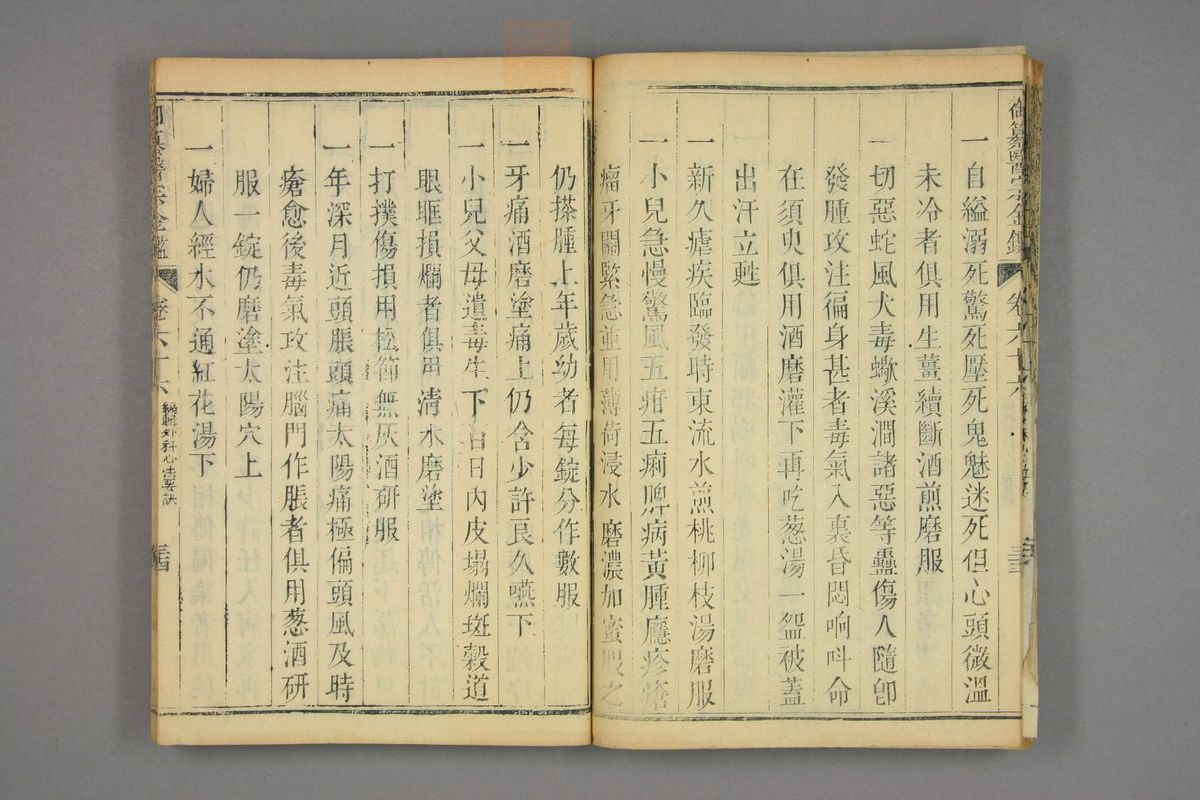 御纂醫宗金鑑 卷六十六 三十三
一自縊溺死驚死壓死鬼魅迷死但心頭微溫
未冷者俱用生薑續斷酒煎磨服
一切惡蛇風犬毒蠍溪澗諸惡等蠱傷人隨卽
發腫攻注徧身甚者毒氣入裏昏悶响叫命
在須臾俱用酒磨灌下再吃葱湯一盌被蓋
出汗立甦
一新久瘧疾臨發時東流水煎桃柳枝湯磨服
一小兒急慢驚風五疳五痢脾病黃腫癮疹瘡
瘤牙關緊急並用薄荷浸水磨濃加蜜服之
仍搽腫上年歲幼者每錠分作數服
一牙痛酒磨塗痛上仍含少許良久嚥下
一小兒父母遺毒生下百日內皮塌爛斑穀道
眼眶損爛者俱用清水磨塗
一打撲傷損用松節無灰酒研服
一年深月近頭脹頭痛太陽痛極偏頭風及時
瘡愈後毒氣攻注腦門作脹者俱用葱酒研
服一錠仍磨塗太陽穴上
一婦人經水不通紅花湯下
御纂醫宗金鑑 卷六十六 編輯外科心法要訣